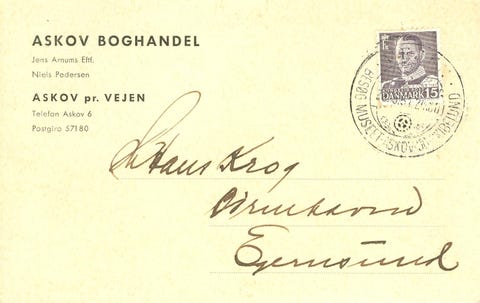 ASKOV BOGHANDEL
Jens Arnums Eftf.
Niels Pedersen
ASKOV pr. VEJEN
Telefon Askov 6
Postgiro 57180
DANMARK 15
BESØG MUSEET ASKOV
Hr Hans Krog
Egernsund